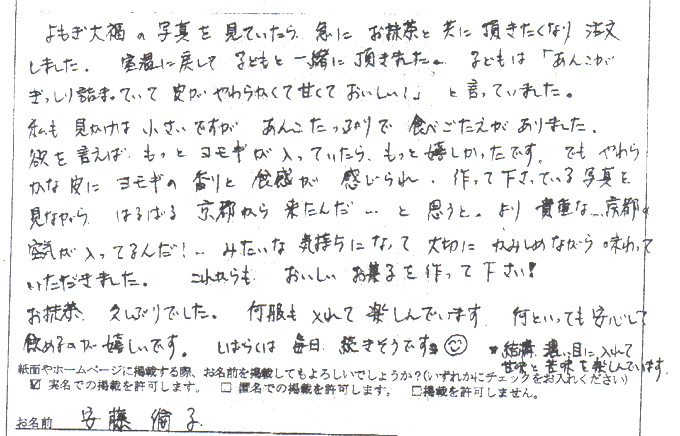 よもぎ大福の写真を見ていたら、急にお抹茶と共に頂きたくなり注文
しました。 室温に戻して子どもと一緒に頂きました。 子どもは「あんこが
ぎっしり詰まっていて皮がやわらかくて甘くておいしい!」と言っていました。
私も見かけは小さいですが あんこたっぷりで食べごたえがありました。
欲を言えば、もっとヨモギが入っていたら、もっと嬉しかったです。でもやわら
かな皮にヨモギの香りと食感が感じられ、作って下さっている写真を
見ながら はるばる京都から来たんだ…と思うと。より貴重な…京都の
空気が入ってるんだ!…みたいな気持ちになって大切にかみしめながら味わって
いただきました。 これからも おいしいお菓子を作って下さい!
お抹茶 久しぶりでした。 何服も入れて楽しんでいます。何といっても安心して
飲めるのが嬉しいです。 しばらくは毎日続きそうです
*結構濃い目に入れて
甘味と苦味を楽しんでいます。
紙面やホームページに掲載する際、お名前を掲載してもよろしいでしょうか?(いずれかにチェックをお入れください)
☑ 実名での掲載を許可します。 □ 匿名での掲載を許可します。 □掲載を許可しません。
お名前 安藤 倫子